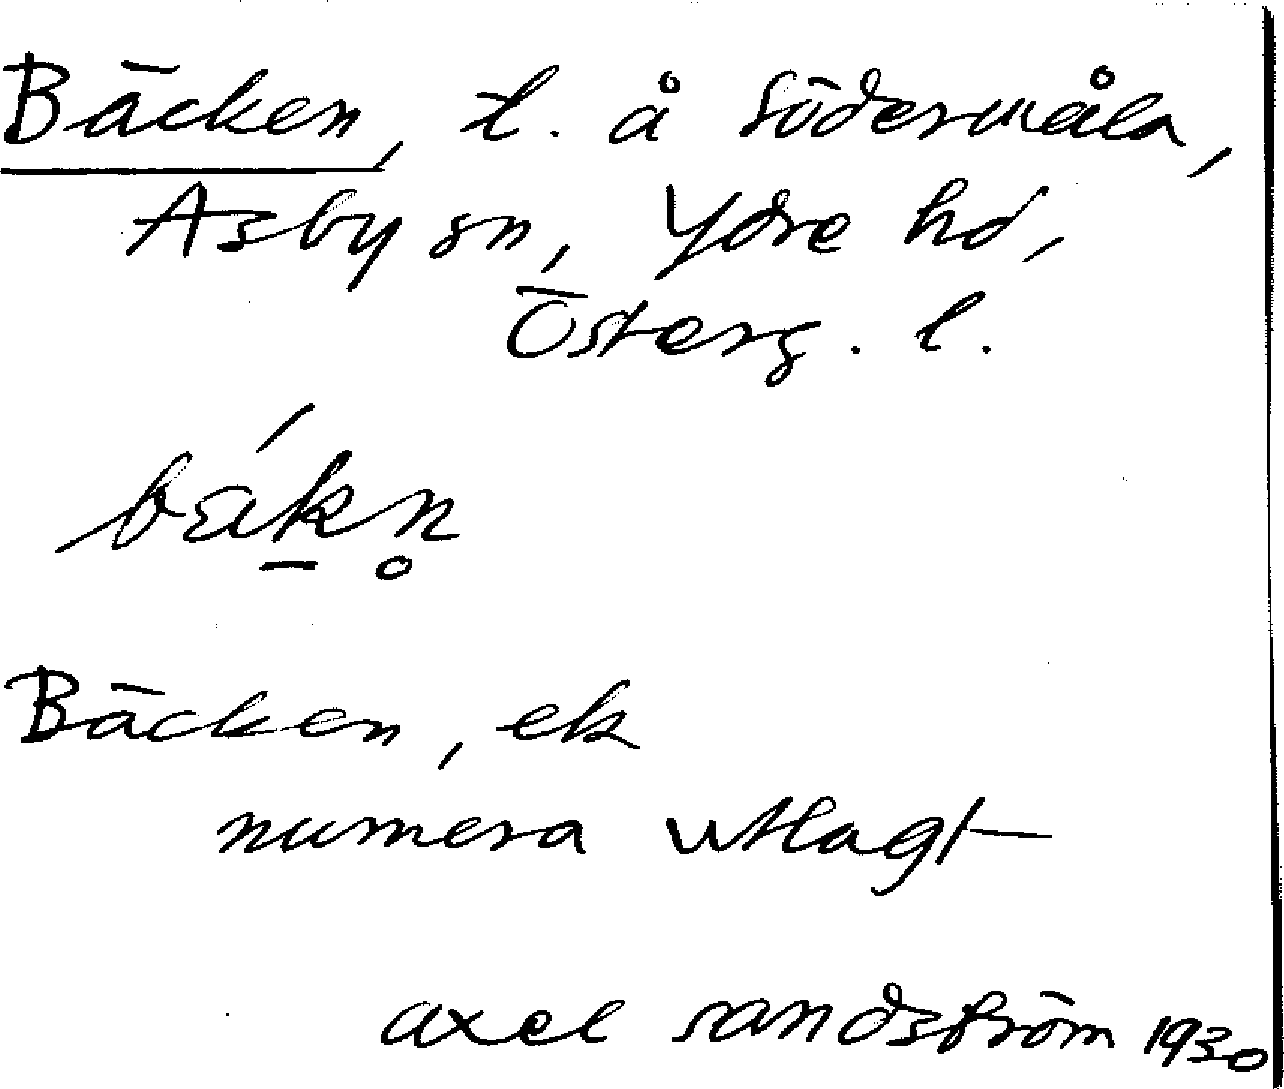 Bäcken, t. å Södermåla,
Asby sn, Ydre hd,
Österg. l.
bäkn̥
Bäcken, ek
numera utlagt
axel sandström 1930